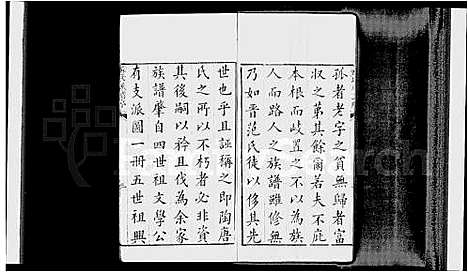 孤者老字之貧無歸者富
収之第其餘爾若夫不庇
本根而歧置之不以為族
人而路人之族譜雖修無
乃如晋范氏徒以侈其先
世也乎且誣稱之即陶唐
氏之所以不朽者必非資
其後嗣以矜且伐為余家
族譜肇自四世祖文學公
有支派圖一冊五世祖興